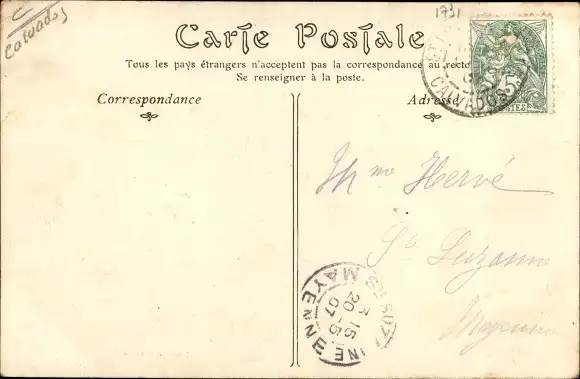 Calvados
1731
Carte Postale
Tous les pays étrangers n'acceptent pas la correspondance au recto
Se renseigner à la poste.
Correspondance
Adresse
CALVADOS
5
POSTES
Mme Hervé
Ste Suzanne
Mayenne
MAYENNE
3 15
20 -5
07